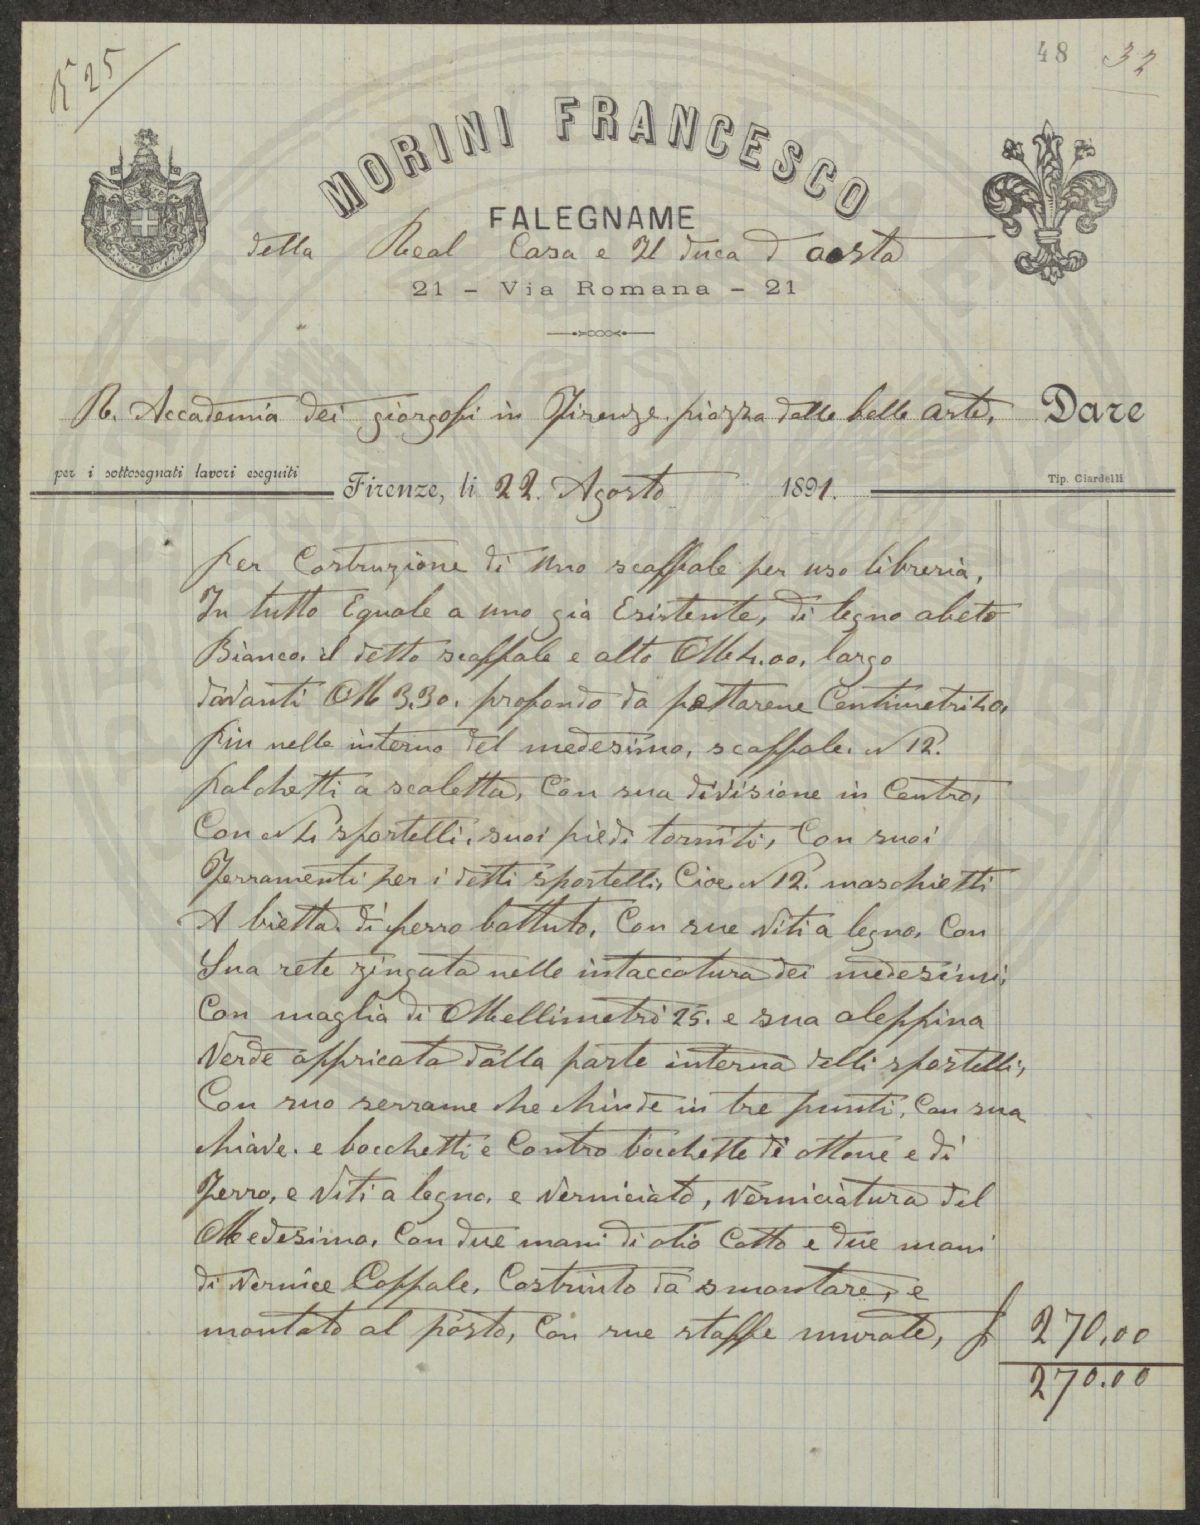 N 25
48 32
MORINI FRANCESCO
FALEGNAME
della Real Casa e Il duca d aosta
21 - Via Romana - 21
R. Accademia dei giorgofi in Firenze piazza delle belle arte, Dare
per i sottosegnati lavori eseguiti
Firenze, li 22. Agosto 1891.
Tip. Ciardelli
per Costruzione di uno scaffale per uso libreria,
In tutto Equale a uno gia Esistente, di legno abeto
Bianco. il detto scaffale e alto M 4.00. largo
davanti M 3.30. profondo da Centimetri 40,
piu nelle interno del medesimo, scaffale. N 12.
palchetti a scaletta, Con sua divisione in Centro,
Con N 4 sportelli. suoi piedi torniti, Con suoi
Ferramenti per i detti sportelli, Cioe N 12. maschietti
A bietta di ferro battuto, Con sue Viti a legno. Con
Sua rete zingata nelle intaccatura dei medesimi,
Con maglia di Mellimetri 25. e sua aleppina
Verde appricata dalla parte interna delli sportelli,
Con suo serrame che chiude in tre punti, Con sua
chiave. e bocchetti e Contro bocchette di ottone e di
Ferro, e Viti a legno, e Verniciato, Verniciatura del
Medesimo, Con due mani di olio Cotto e due mani
di Vernice Coppale, Costruito da smontare, e
montato al posto, Con sue staffe murate, £ 270,00
270.00